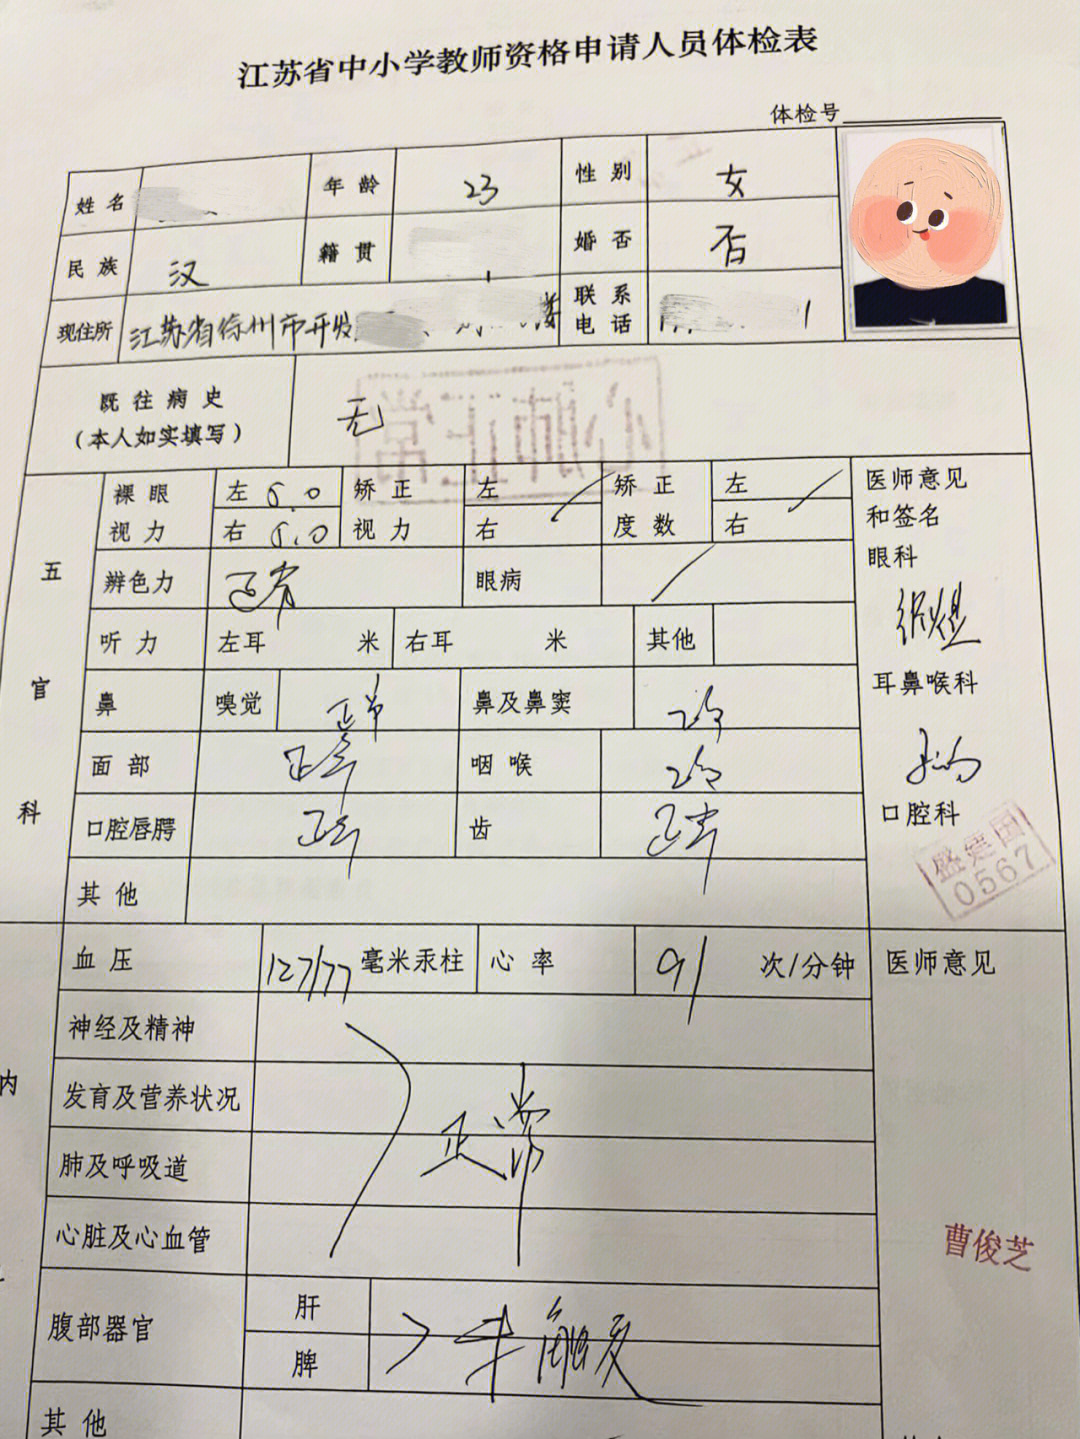 江苏省中小学教师资格申请人员体检表
体检号
姓名 年龄 23 性别 女
民族 汉 籍贯 婚否 否
现住所 江苏省徐州市开发 楼 联系电话
既往病史
（本人如实填写） 无
心肺正常
五官科
裸眼视力 左 5.0 右 5.0 矫正视力 左 右 矫正度数 左 右
医师意见
和签名
眼科
辨色力 正常 眼病
听力 左耳 米 右耳 米 其他
鼻 嗅觉 正常 鼻及鼻窦 正常
耳鼻喉科
面部 正常 咽喉 正常
口腔唇腭 正常 齿 正常
口腔科
盛建国
0567
其他
内
血压 127/77 毫米汞柱 心率 91 次/分钟 医师意见
神经及精神
发育及营养状况 正常
肺及呼吸道
心脏及心血管
曹俊芝
腹部器官 肝 脾 未触及
其他